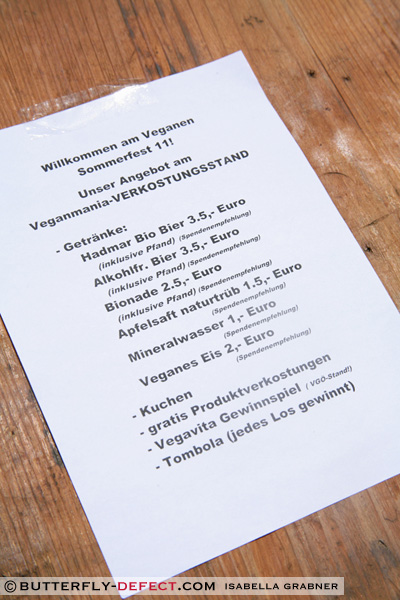 Willkommen am Veganen
Sommerfest 11!
Unser Angebot am
Veganmania-VERKOSTUNGSSTAND
- Getränke:
Hadmar Bio Bier 3.5,- Euro
(inklusive Pfand) (Spendenempfehlung)
Alkohlfr. Bier 3.5,- Euro
(inklusive Pfand) (Spendenempfehlung)
Bionade 2.5,- Euro
(inklusive Pfand) (Spendenempfehlung)
Apfelsaft naturtrüb 1.5,- Euro
(Spendenempfehlung)
Mineralwasser 1,- Euro
(Spendenempfehlung)
Veganes Eis 2,- Euro
(Spendenempfehlung)
- Kuchen
- gratis Produktverkostungen
- Vegavita Gewinnspiel ( VGÖ-Stand!)
- Tombola (jedes Los gewinnt)
© BUTTERFLY-DEFECT.COM ISABELLA GRABNER